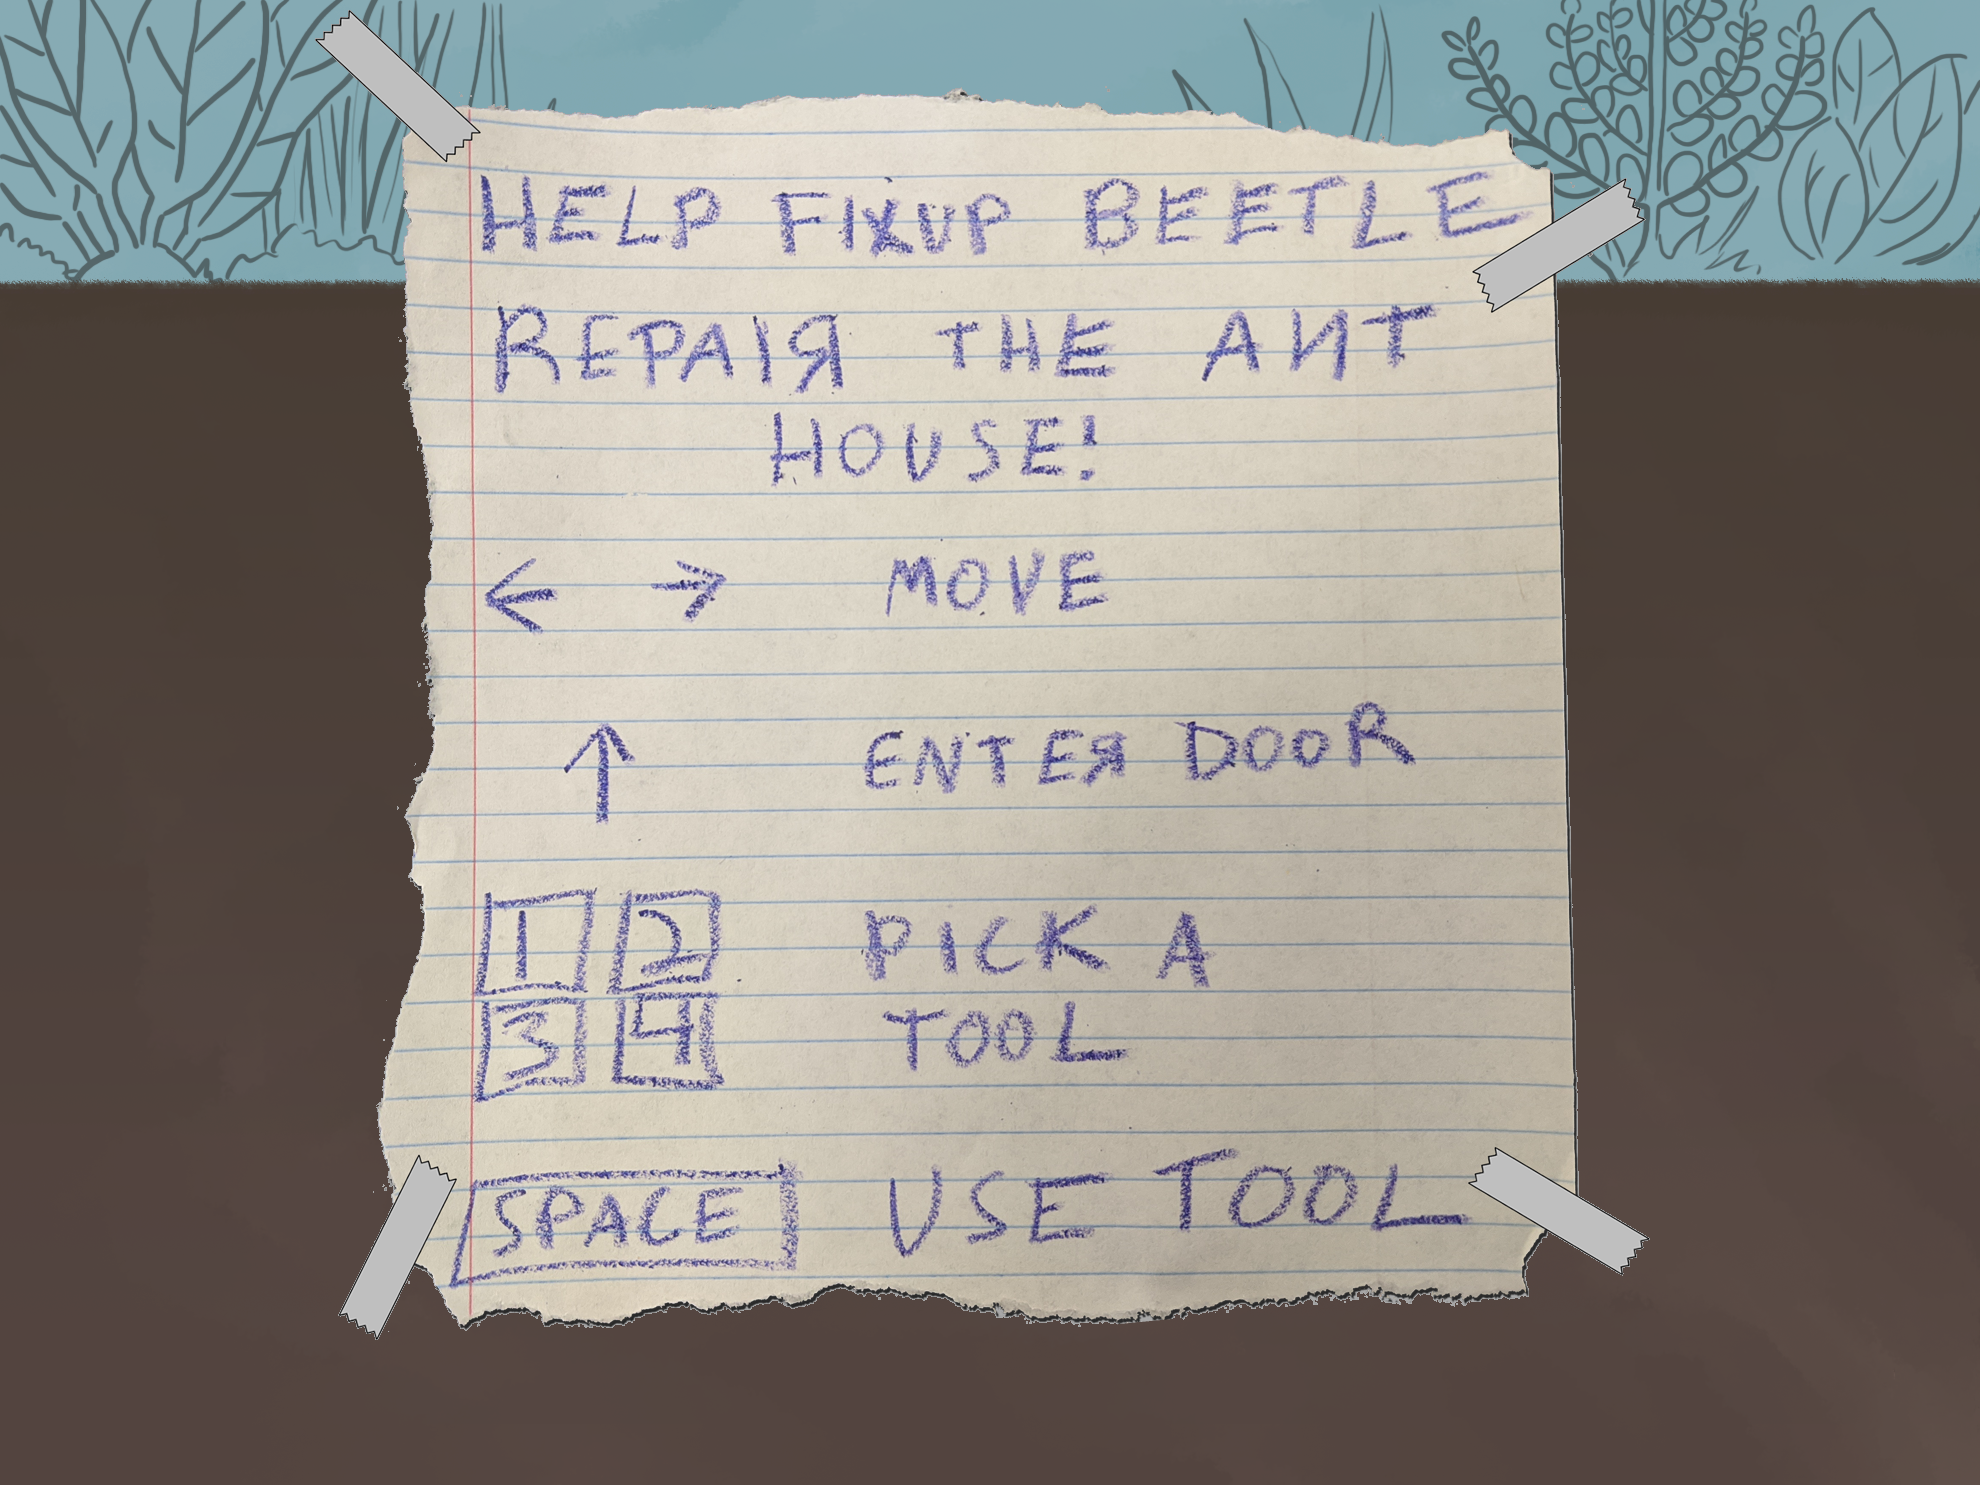 HELP FIXUP BEETLE
REPAIЯ THE AИT
HOUSE!
← → MOVE
↑ ENTEЯ DOOR
1 2 PICK A
3 4 TOOL
SPACE USE TOOL